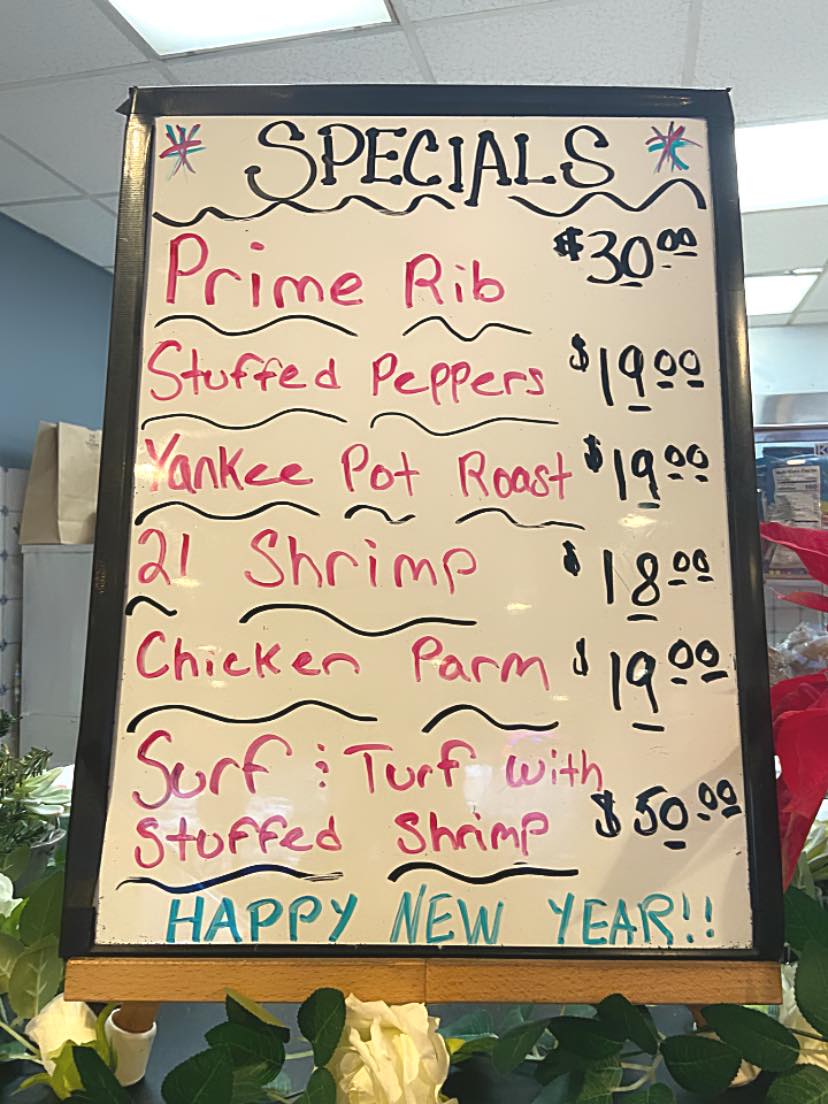 SPECIALS
Prime Rib $30.00
Stuffed Peppers $19.00
Yankee Pot Roast $19.00
21 Shrimp $18.00
Chicken Parm $19.00
Surf & Turf with
Stuffed Shrimp $50.00
HAPPY NEW YEAR!!